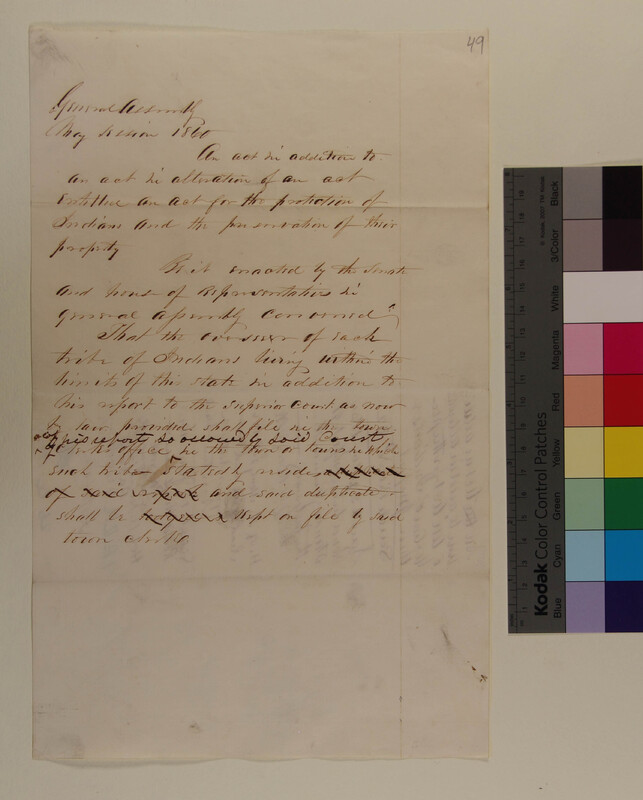 49
General Assembly
May Session 1860
An act in addition to
an act in alteration of an act
entitled an act for the protection of
Indians and the preservation of their
property
Be it enacted by the Senate
and house of Representatives in
general assembly convened
That the overseer of each
tribe of Indians living within the
limits of this state in addition to
his report to the superior court as now
by law provided shall file in the town
of his report so allowed by said Court
Clerks office in the town or towns in which
such tribe statedly reside
of said report and said duplicate
shall be kept on file by said
town clerk
Kodak Color Control Patches
© Kodak, 2007 TM: Kodak
Blue Cyan Green Yellow Red Magenta White 3/Color Black